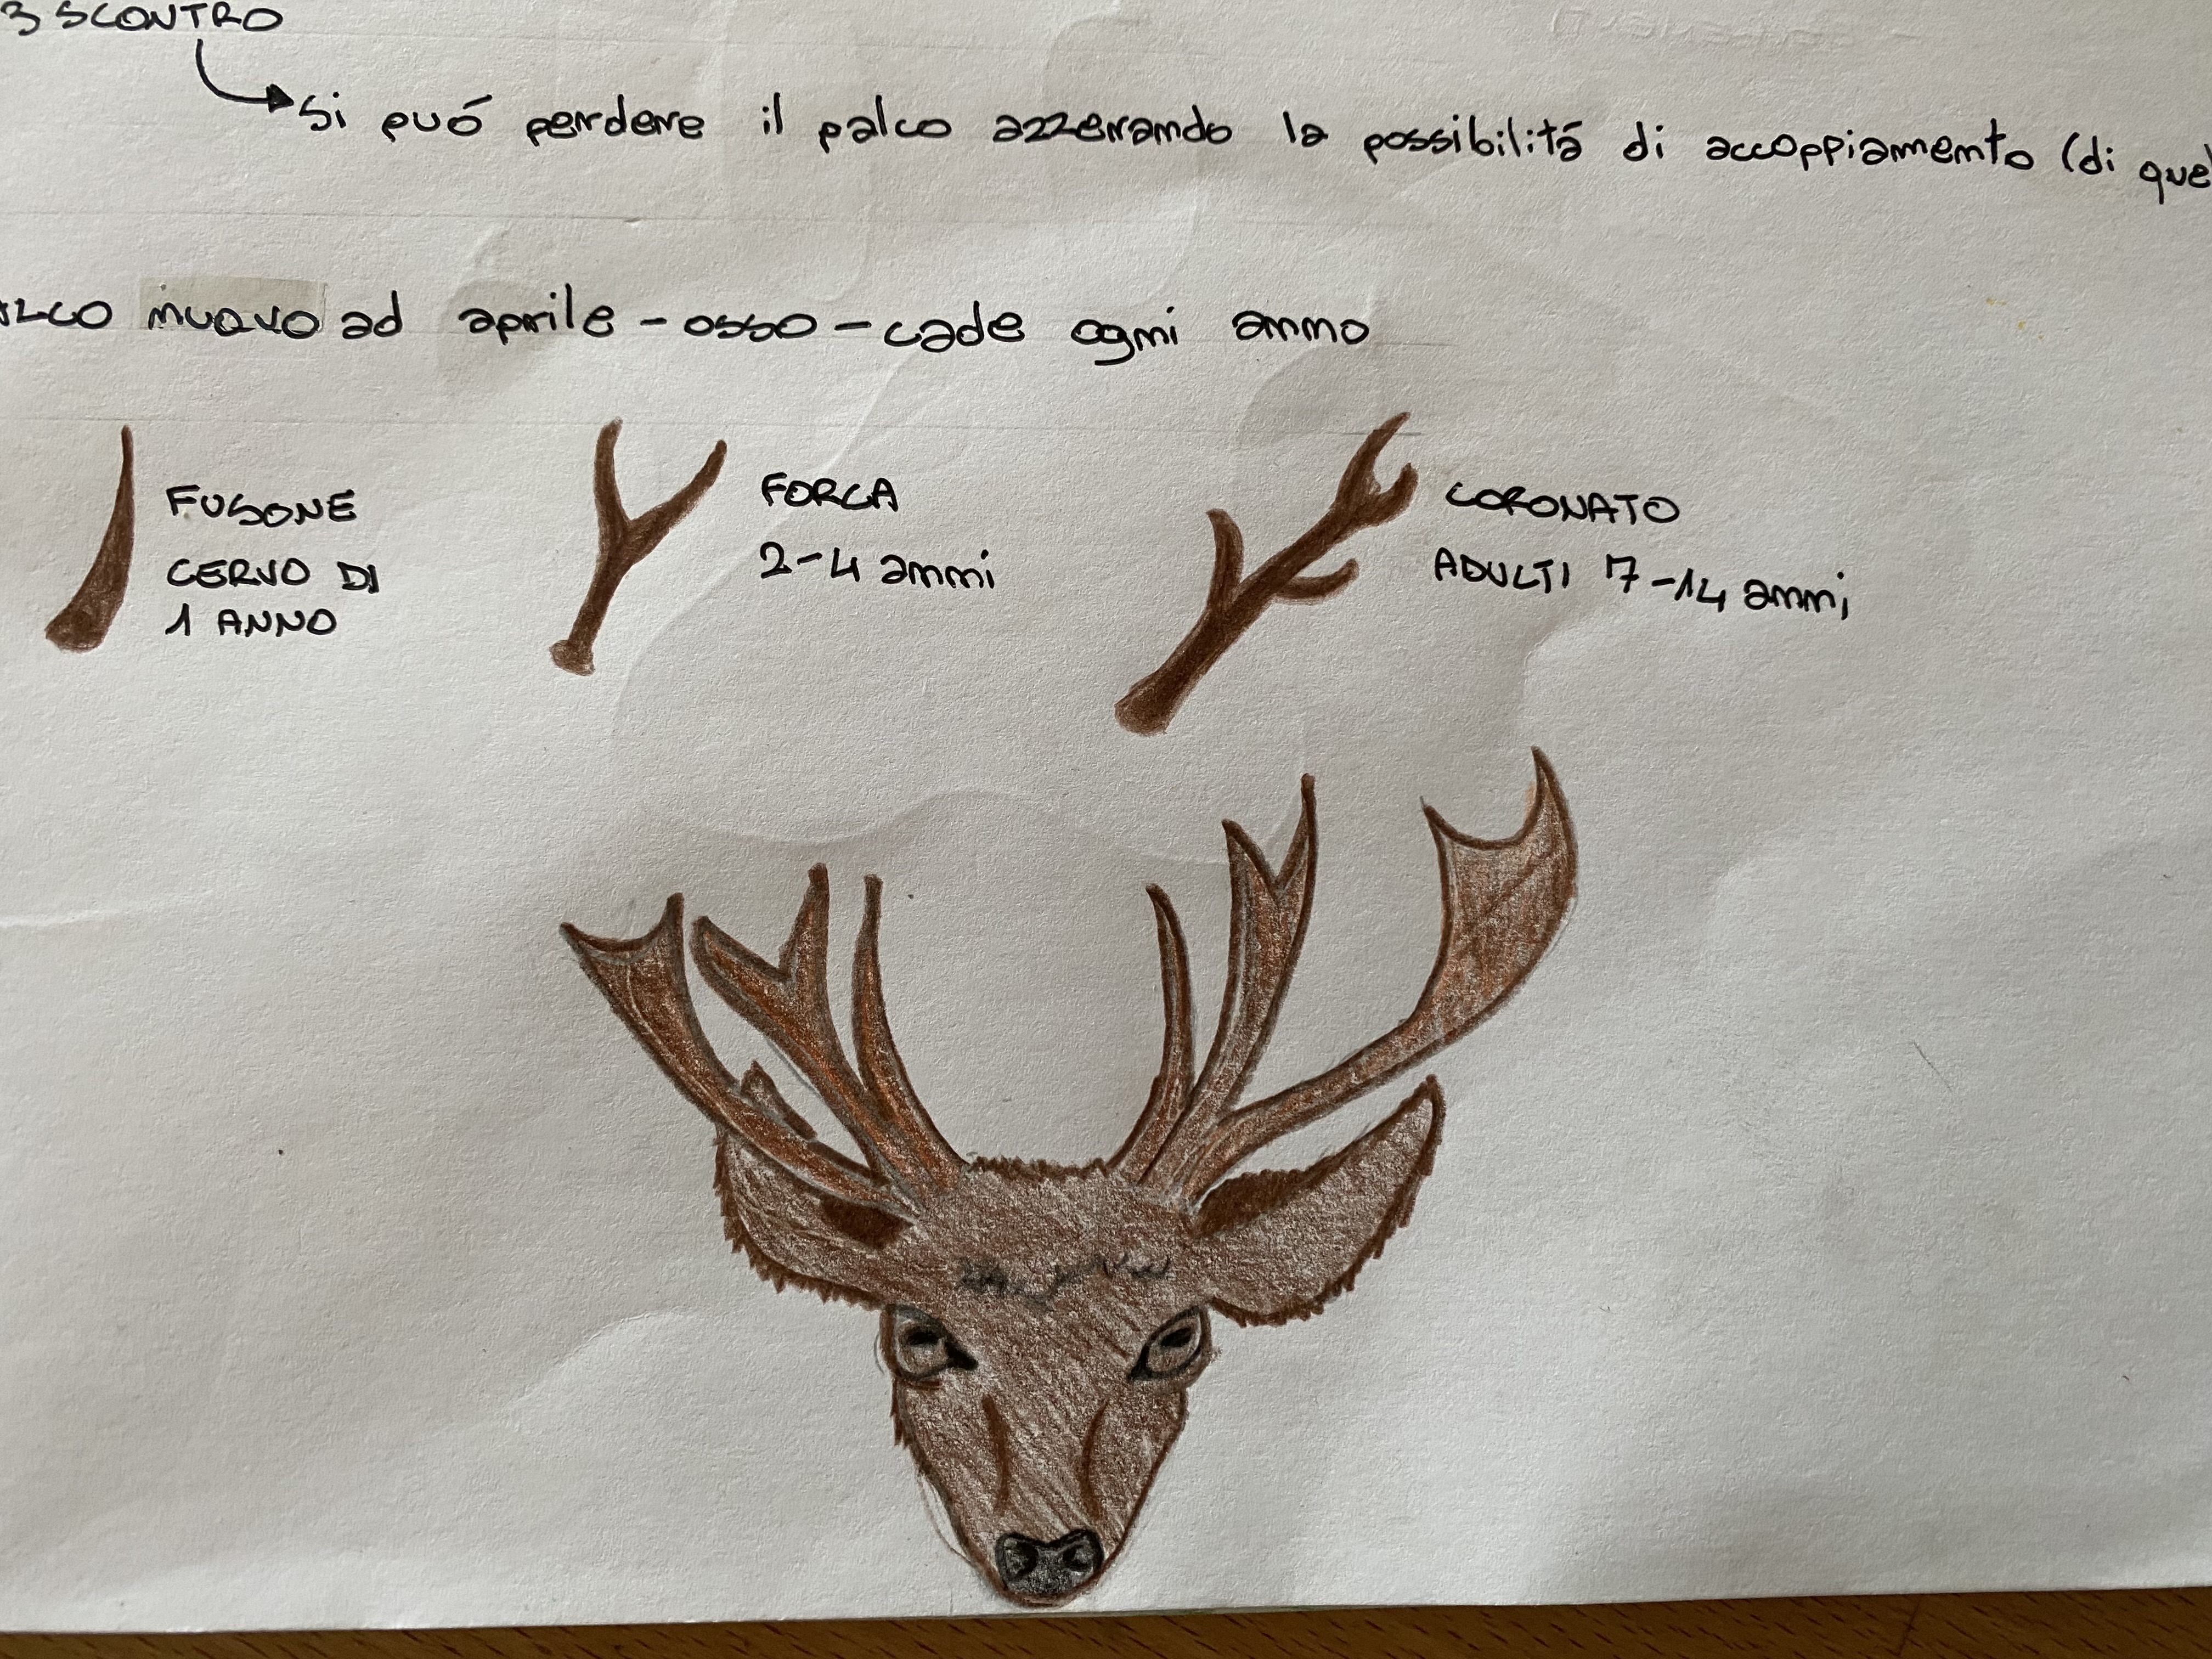 3 SCONTRO
si puó perdere il palco azzerando la possibilitá di accoppiamento (di quel
ALCO nuovo ad aprile - osso - cade ogni anno
FUSONE
CERVO DI
1 ANNO
FORCA
2-4 anni
CORONATO
ADULTI 7-14 anni